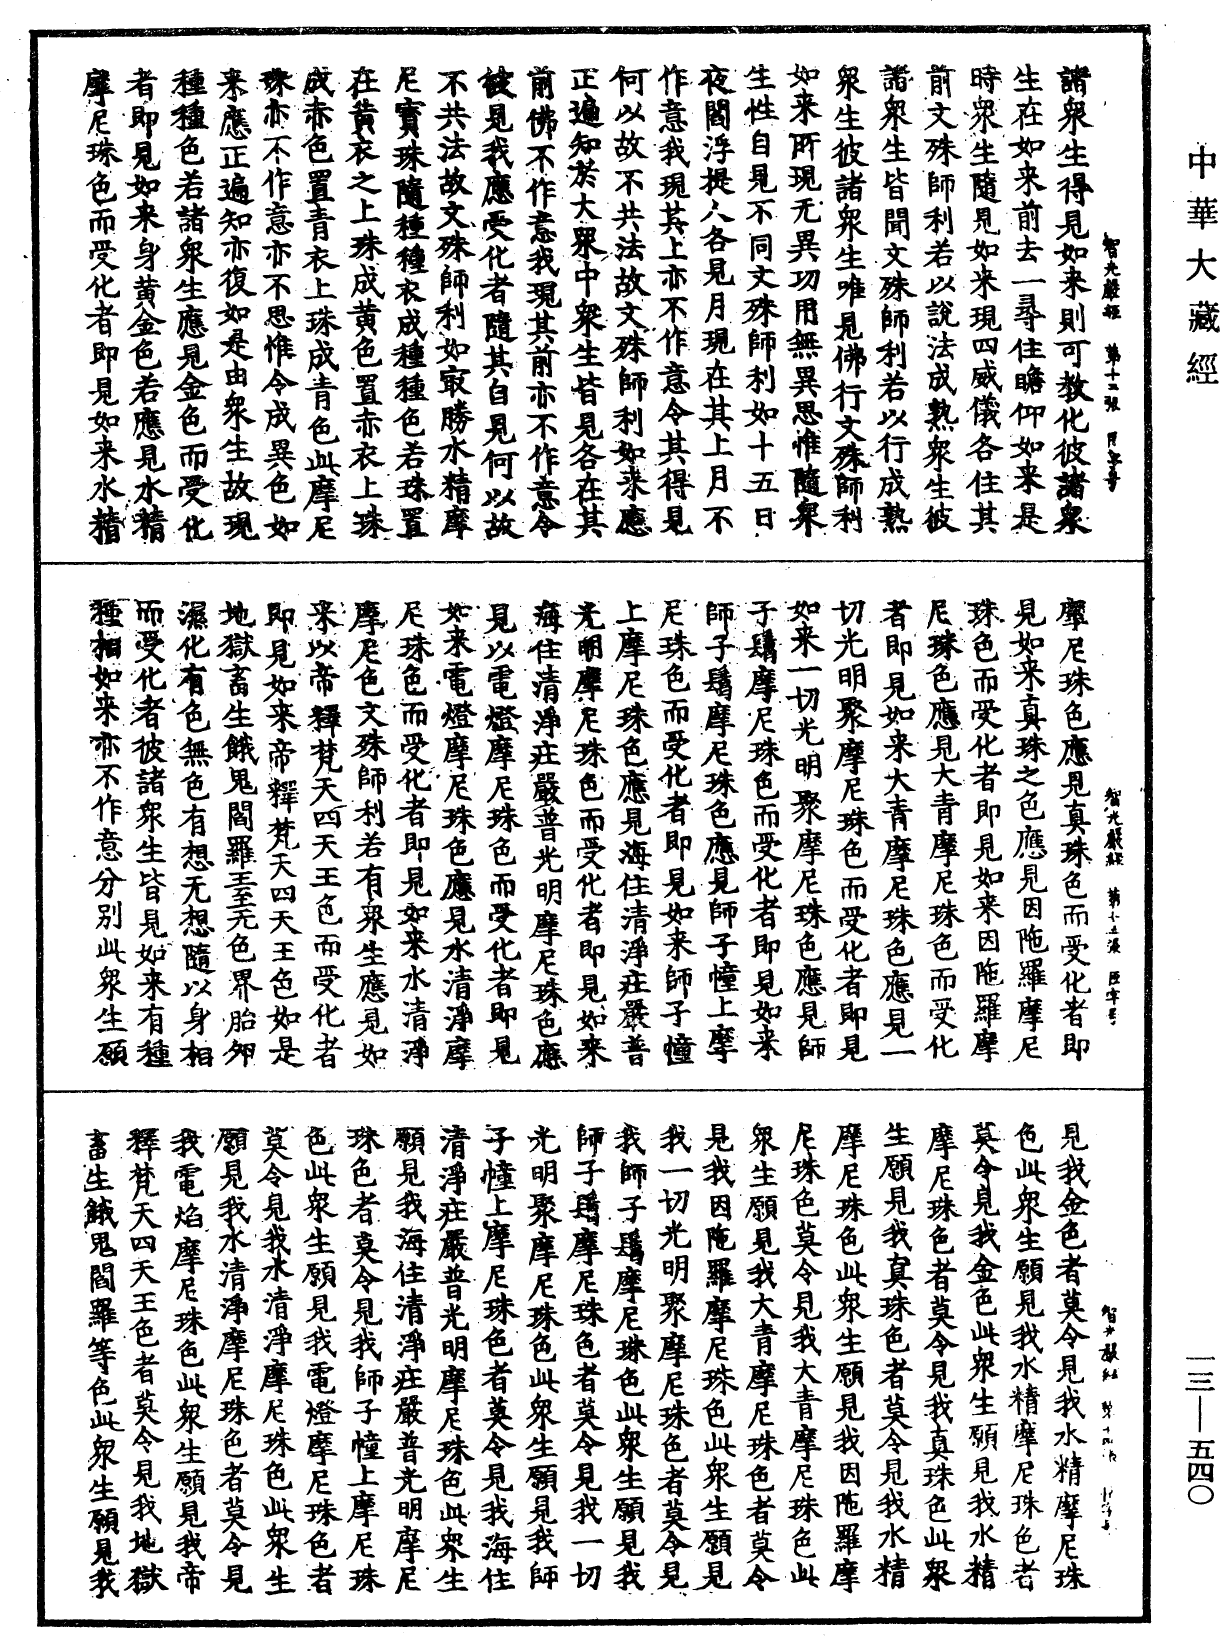 中華大藏經
諸衆生得見如来則可教化彼諸衆
生在如来前去一尋住瞻仰如来是
時衆生隨見如来現四威儀各住其
前文殊師利若以說法成熟衆生彼
諸衆生皆聞文殊師利若以行成熟
衆生彼諸衆生唯見佛行文殊師利
如来所現无異功用無異思惟隨衆
生性自見不同文殊師利如十五日
夜閻浮提人各見月現在其上月不
作意我現其上亦不作意令其得見
何以故不共法故文殊師利如来應
正遍知於大衆中衆生皆見各在其
前佛不作意我現其前亦不作意令
彼見我應受化者隨其自見何以故
不共法故文殊師利如寂勝水精摩
尼寶珠隨種種衣成種種色若珠置
在黄衣之上珠成黄色置赤衣上珠
成赤色置青衣上珠成青色此摩尼
珠亦不作意亦不思惟令成異色如
来應正遍知亦復如是由衆生故現
種種色若諸衆生應見金色而受化
者即見如来身黄金色若應見水精
摩尼珠色而受化者即見如来水精
智光嚴經　第十二張
摩尼珠色應見真珠色而受化者即
見如来真珠之色應見因陁羅摩尼
珠色而受化者即見如来因陁羅摩
尼珠色應見大青摩尼珠色而受化
者即見如来大青摩尼珠色應見一
切光明聚摩尼珠色而受化者即見
如来一切光明聚摩尼珠色應見師
子髫摩尼珠色而受化者即見如来
師子髫摩尼珠色應見師子幢上摩
尼珠色而受化者即見如来師子幢
上摩尼珠色應見海住清淨莊嚴普
光明摩尼珠色而受化者即見如来
海住清淨莊嚴普光明摩尼珠色應
見以電燈摩尼珠色而受化者即見
如来電燈摩尼珠色應見水清淨摩
尼珠色而受化者即見如来水清淨
摩尼色文殊師利若有衆生應見如
来以帝釋梵天四天王色而受化者
即見如来帝釋梵天四天王色如是
地獄畜生餓鬼閻羅王至无色界胎卵
濕化有色無色有想无想隨以身相
而受化者彼諸衆生皆見如来有種
種相如来亦不作意分別此衆生願
智光嚴經　第十三張
見我金色者莫令見我水精摩尼珠
色此衆生願見我水精摩尼珠色者
莫令見我金色此衆生願見我水精
摩尼珠色者莫令見我真珠色此衆
生願見我真珠色者莫令見我水精
摩尼珠色此衆生願見我因陁羅摩
尼珠色莫令見我大青摩尼珠色此
衆生願見我大青摩尼珠色者莫令
見我因陁羅摩尼珠色此衆生願見
我一切光明聚摩尼珠色者莫令見
我師子髫摩尼珠色此衆生願見我
師子髫摩尼珠色者莫令見我一切
光明聚摩尼珠色此衆生願見我師
子幢上摩尼珠色者莫令見我海住
清淨莊嚴普光明摩尼珠色此衆生
願見我海住清淨莊嚴普光明摩尼
珠色者莫令見我師子幢上摩尼珠
色此衆生願見我電燈摩尼珠色者
莫令見我水清淨摩尼珠色此衆生
願見我水清淨摩尼珠色者莫令見
我電焰摩尼珠色此衆生願見我帝
釋梵天四天王色者莫令見我地獄
畜生餓鬼閻羅等色此衆生願見我
一三—五四〇